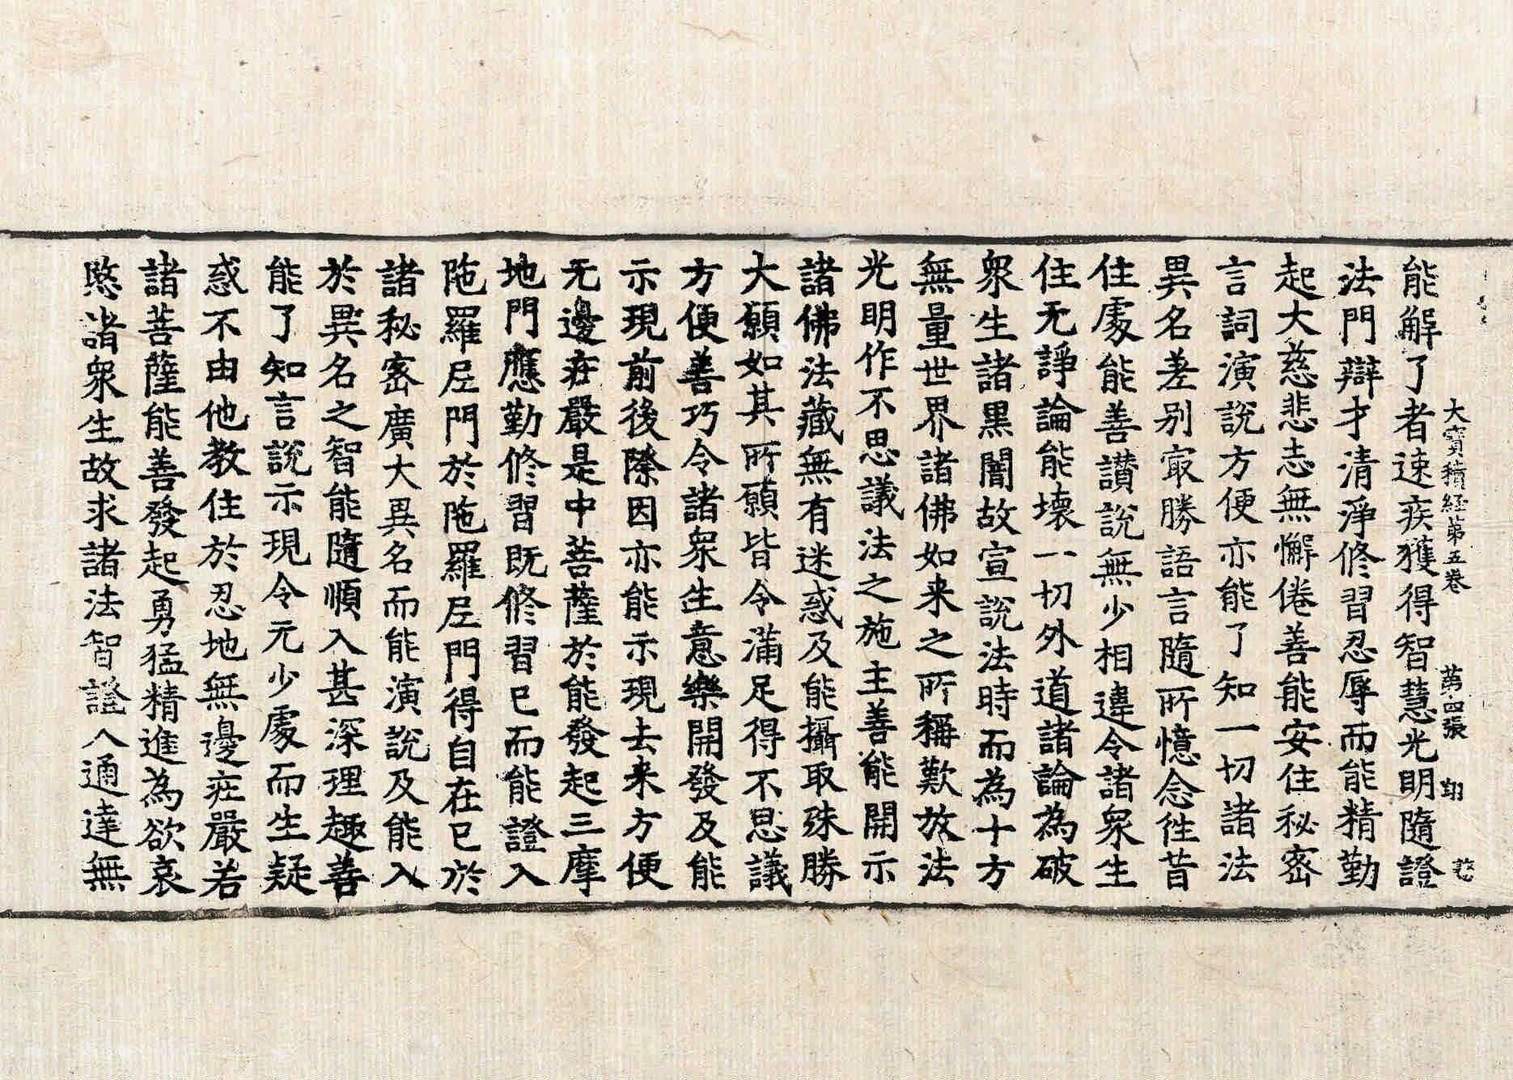 大寶積経第五卷 第四張
能解了者速疾獲得智慧光明隨證
法門辯才清淨修習忍辱而能精勤
起大慈悲志無懈倦善能安住秘密
言詞演說方便亦能了知一切諸法
異名差别㝡勝語言隨所憶念徃昔
住處能善讃說無少相違令諸衆生
住无諍論能壞一切外道諸論為破
衆生諸黒闇故宣說法時而為十方
無量世界諸佛如来之所稱歎放法
光明作不思議法之施主善能開示
諸佛法藏無有迷惑及能攝取殊勝
大願如其所願皆令滿足得不思議
方便善巧令諸衆生意樂開發及能
示現前後際因亦能示現去来方便
无邊㽵嚴是中菩薩於能發起三摩
地門應勤修習既修習已而能證入
陁羅𡰱門於陁羅𡰱門得自在已於
諸秘密廣大異名而能演說及能入
於異名之智能隨順入甚深理趣善
能了知言說示現令元少處而生疑
惑不由他教住於忍地無邊㽵嚴若
諸菩薩能善發起勇猛精進為欲哀
愍諸衆生故求諸法智證入通達無